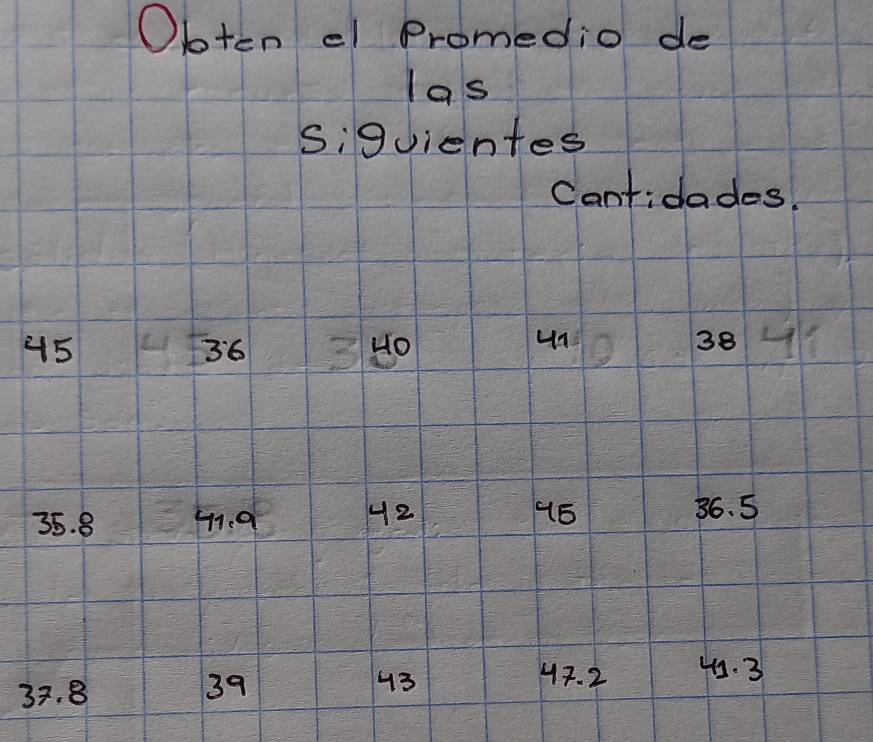 Obten el Promedio de
las
Siguientes
Cantidades.
45 36 40 41 38
35.8 41.9 42 45 36.5
37.8 39 43 47.2 41.3